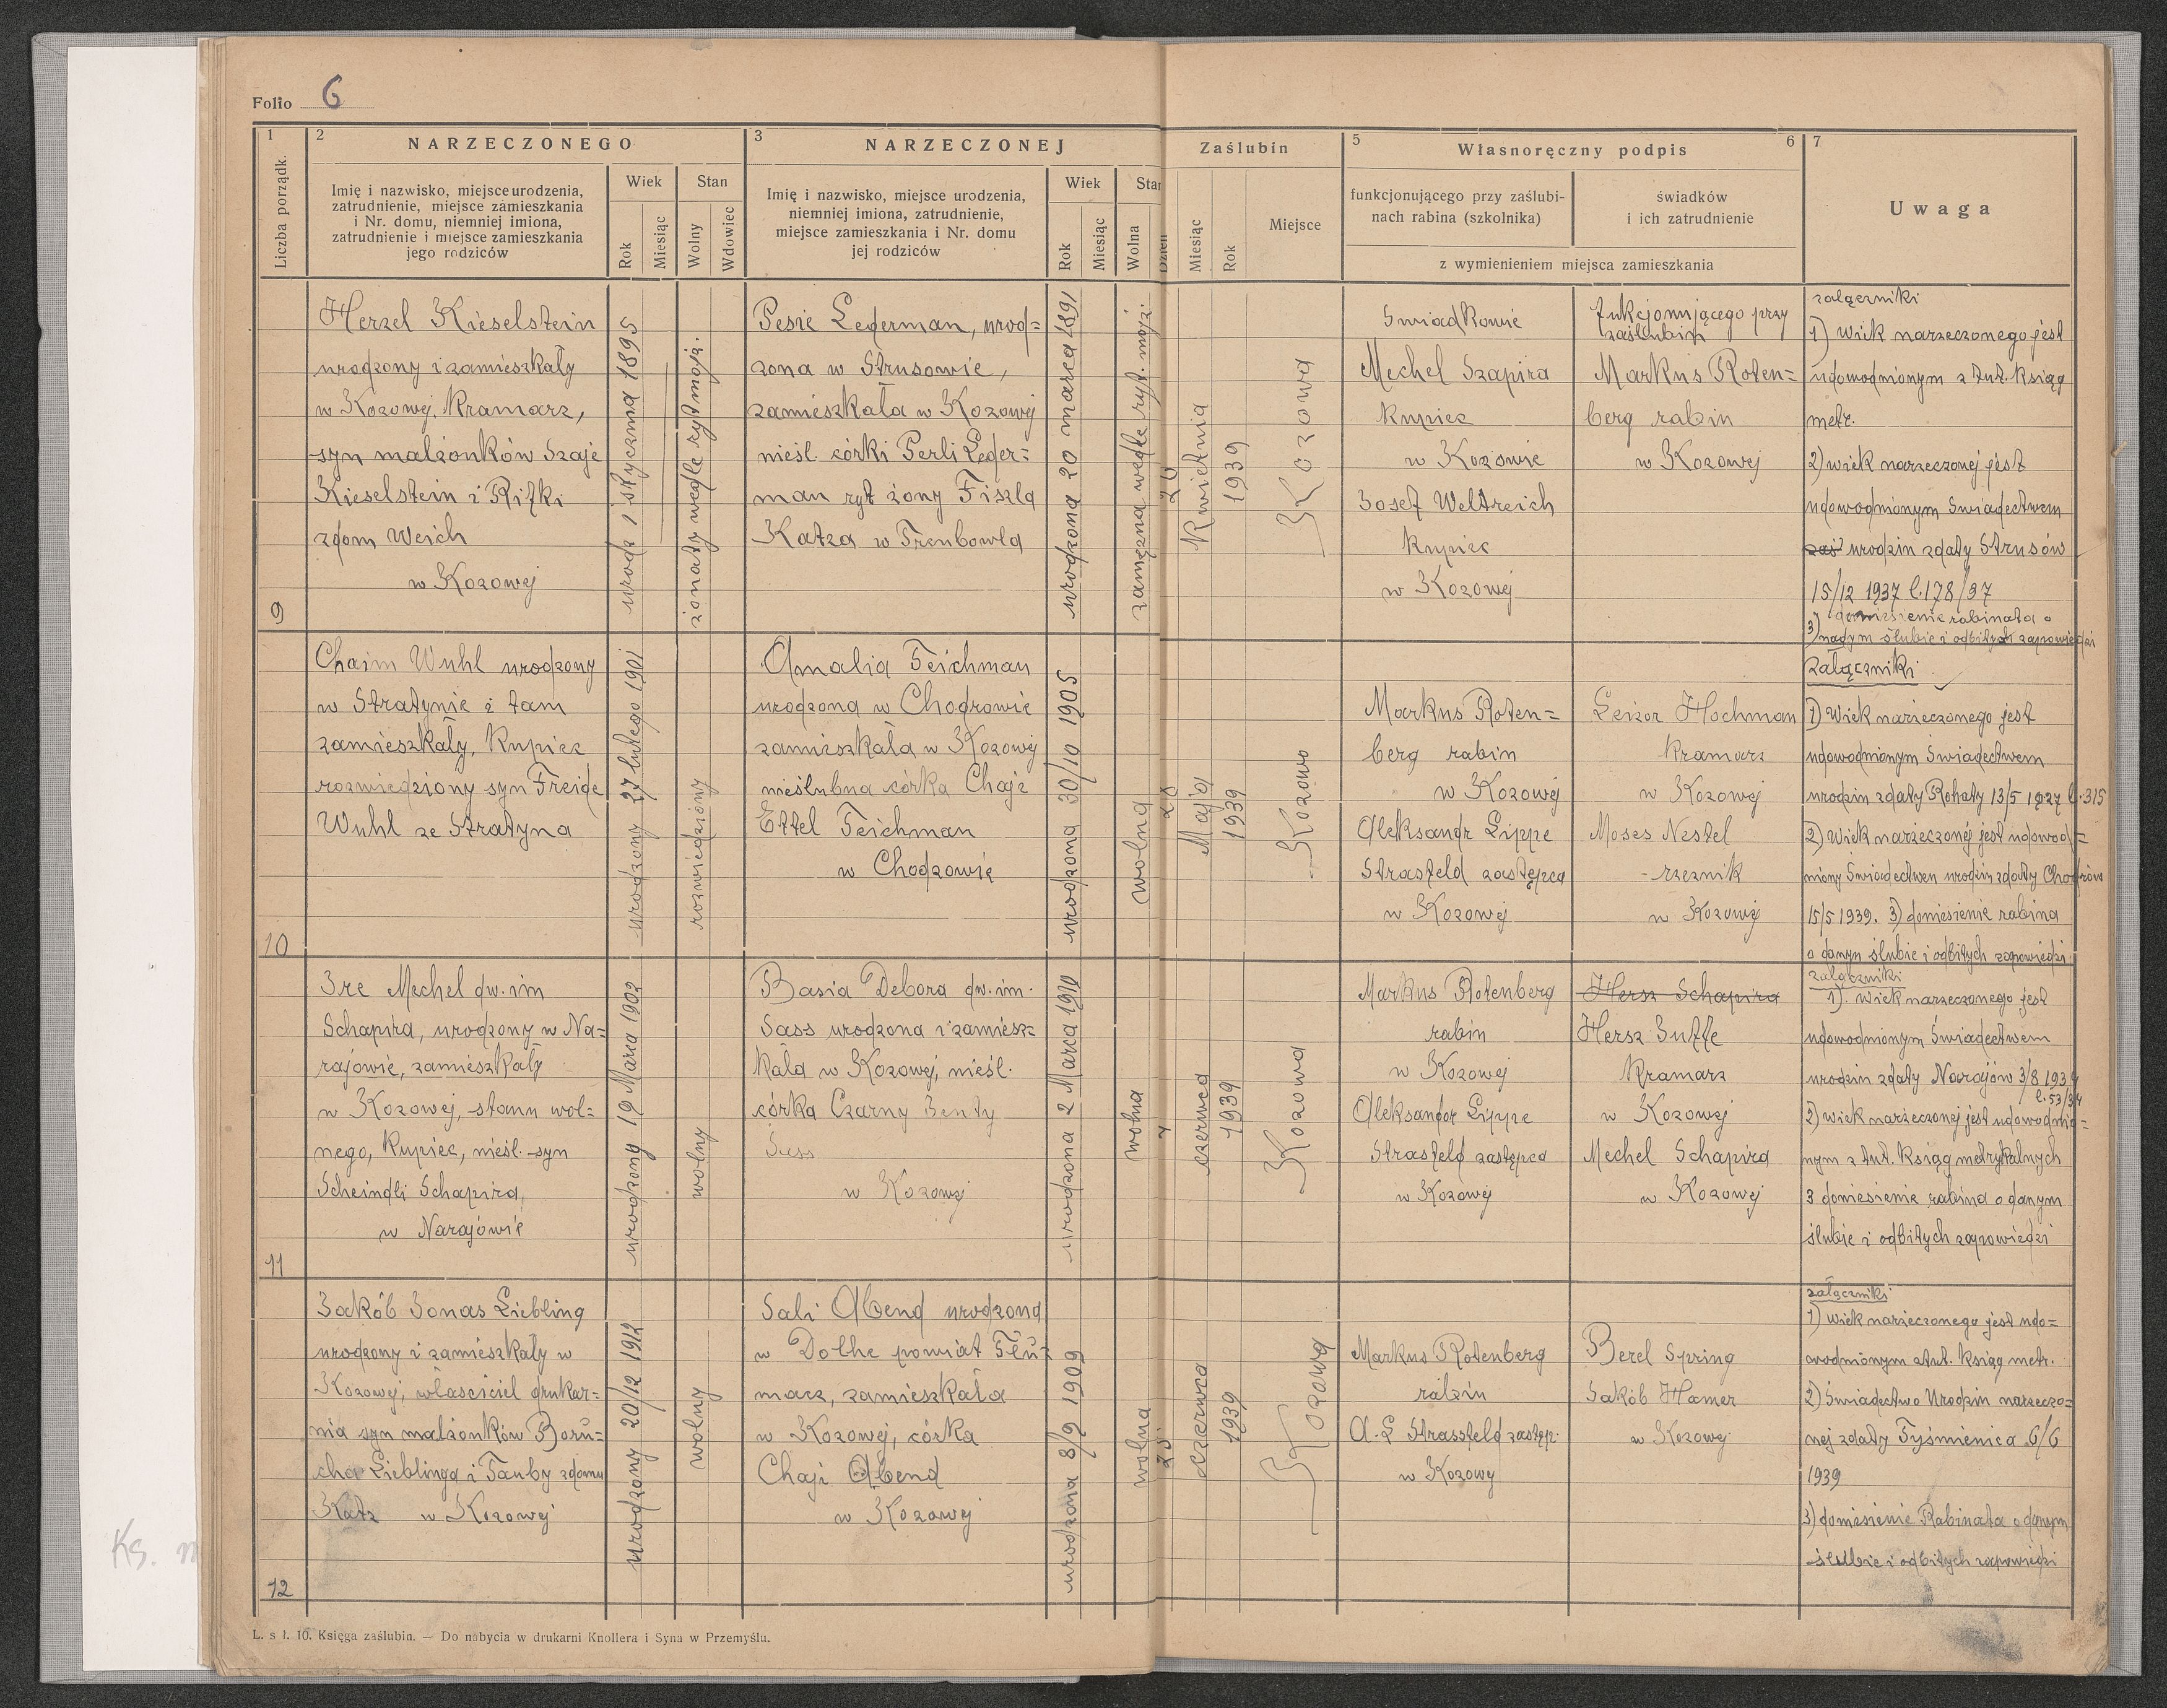 Folio 6
1
Liczba porządk.
2
NARZECZONEGO
Imię i nazwisko, miejsce urodzenia,
zatrudnienie, miejsce zamieszkania
i Nr. domu, niemniej imiona,
zatrudnienie i miejsce zamieszkania
jego rodziców
Wiek
Rok
Miesiąc
Stan
Wolny
Wdowiec
3
NARZECZONEJ
Imię i nazwisko, miejsce urodzenia,
niemniej imiona, zatrudnienie,
miejsce zamieszkania i Nr. domu
jej rodziców
Wiek
Rok
Miesiąc
Stan
Wolna
Zaślubin
Dzień
Miesiąc
Rok
Miejsce
5
Własnoręczny podpis
6
funkcjonującego przy zaślubi-
nach rabina (szkolnika)
świadków
i ich zatrudnienie
z wymienieniem miejsca zamieszkania
7
Uwaga
9
Herzel Kieselstein
urodzony i zamieszkały
w Kozowej, Kramarz,
syn małżonków Szaje
Kieselstein i Rifki
zdom Weich
w Kozowej
urodz 1 stycznia 1895
żonaty wedle ryt mojż.
Pesie Lederman, urod=
zona w Strusowie,
zamieszkała w Kozowej
nieśl. córki Perli Leder=
man ryt żony Fiszla
Katza w Trembowla
urodzona 20 marca 1891
zamężna wedle ryt. mojż.
26
Kwietnia
1939
Kozowa
Świadkowie
Mechel Szapira
Kupiec
w Kozowie
Josef Weltreich
Kupiec
w Kozowej
funkcjonującego przy
zaślubin
Markus Roten=
berg rabin
w Kozowej
załączniki
1) Wiek narzeczonego jest
udowodnionym z tut. ksiąg
metr.
2) wiek narzeczonej jest
udowodnionym Świadectwem
zaś urodzin zdaty Strusów
15/12 1937 l.178/37
3) doniesienie rabinata o
ślubie i odbitych zapowiedzi
10
Chaim Wuhl urodzony
w Stratynie i tam
zamieszkały, Kupiec
rozwiedziony syn Freide
Wuhl ze Stratyna
urodzony 27 lutego 1901
rozwiedziony
Amalia Teichman
urodzona w Chodrowie
zamieszkała w Kozowej
nieślubna córka Chaje
Ettel Teichman
w Chodzowie
urodzona 30/10 1905
wolna
28
Maja
1939
Kozowo
Markus Roten=
berg rabin
w Kozowej
Aleksandr Lippe
Strasfeld zastępca
w Kozowej
Leizor Hochman
Kramarz
w Kozowej
Moses Nestel
rzeznik
w Kozowej
Załączniki
1) Wiek narzeczonego jest
udowodnionym Świadectwem
urodzin zdaty Rohaty 13/5 1927 l.315
2) Wiek narzeczonej jest udowod=
niony Świadectwem urodzin zdaty Chodrów
15/5 1939. 3) doniesienie rabina
o danym ślubie i odbitych zapowiedzi
11
Ire Mechel dw. im
Schapira, urodzony w Na=
rajówie, zamieszkały
w Kozowej, stanu wol=
nego, Kupiec, nieśl. syn
Scheindli Schapira,
w Narajówie
urodzony 19 Marca 1902
wolny
Basia Debora dw. im.
Sass urodzona i zamiesz=
kała w Kozowej, nieśl.
córka Czarny Benty
Sass
w Kozowej
urodzona 2 Marca 1910
wolna
czerwca
1939
Kozowa
Markus Rotenberg
rabin
w Kozowej
Aleksander Lippe
Strasfeld zastępca
w Kozowej
Hersz Schapira
Hersz Suffe
Kramarz
w Kozowej
Mechel Schapira
w Kozowej
załączniki
1) Wiek narzeczonego jest
udowodnionym Świadectwem
urodzin zdaty Narajów 3/8 1934
l.53/34
2) wiek narzeczonej jest udowodnio=
nym z tut. Ksiąg metrykalnych
3 doniesienie rabina o danym
ślubie i odbitych zapowiedzi
12
Jakób Jonas Liebling
urodzony i zamieszkały w
Kozowej, własciciel drukar=
nia syn małżonków Boru=
cha Lieblinga i Tauby zdomu
Katz w Kozowej
urodzony 20/12 1912
wolny
Sali Abend urodzona
w Dolhe powiat Tłu=
macz, zamieszkała
w Kozowej, córka
Chaji Abend
w Kozowej
urodzona 8/9 1909
wolna
25.
Czerwca
1939
Kozowa
Markus Rotenberg
rabin
A. L Strassfeld zastęp.
w Kozowy
Berel Spring
Jakób Hamer
w Kozowej
załączniki
1) Wiek narzeczonego jest udo=
wodnionym ztut. Ksiąg metr.
2) Świadectwo Urodzin narzeczo=
nej zdaty Tyśmienica 6/6
1939
3) doniesienie Rabinata o danym
ślubie i odbitych zapowiedzi
L. s ł. 10. Księga zaślubin. — Do nabycia w drukarni Knollera i Syna w Przemyślu.
Ks.